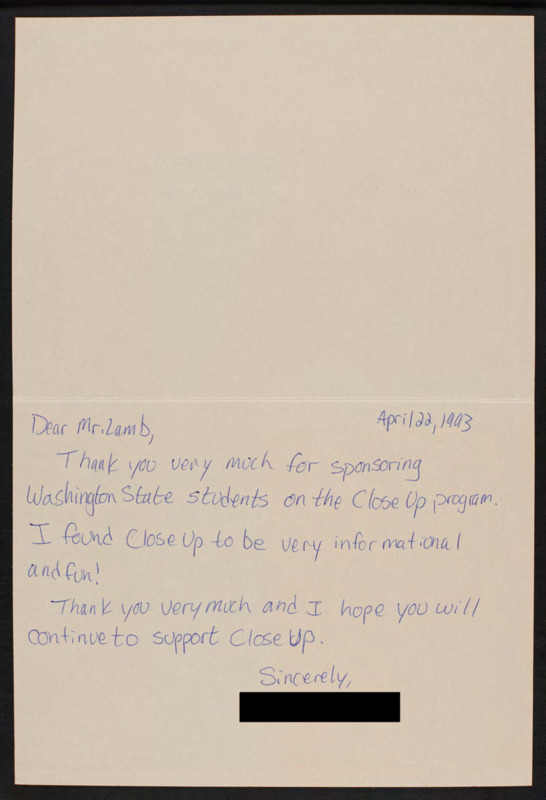 April 22, 1993
Dear Mr. Lamb,
Thank you very much for sponsoring
Washington State students on the Close Up program.
I found Close Up to be very informational
and fun!
Thank you very much and I hope you will
continue to support Close Up.
Sincerely,